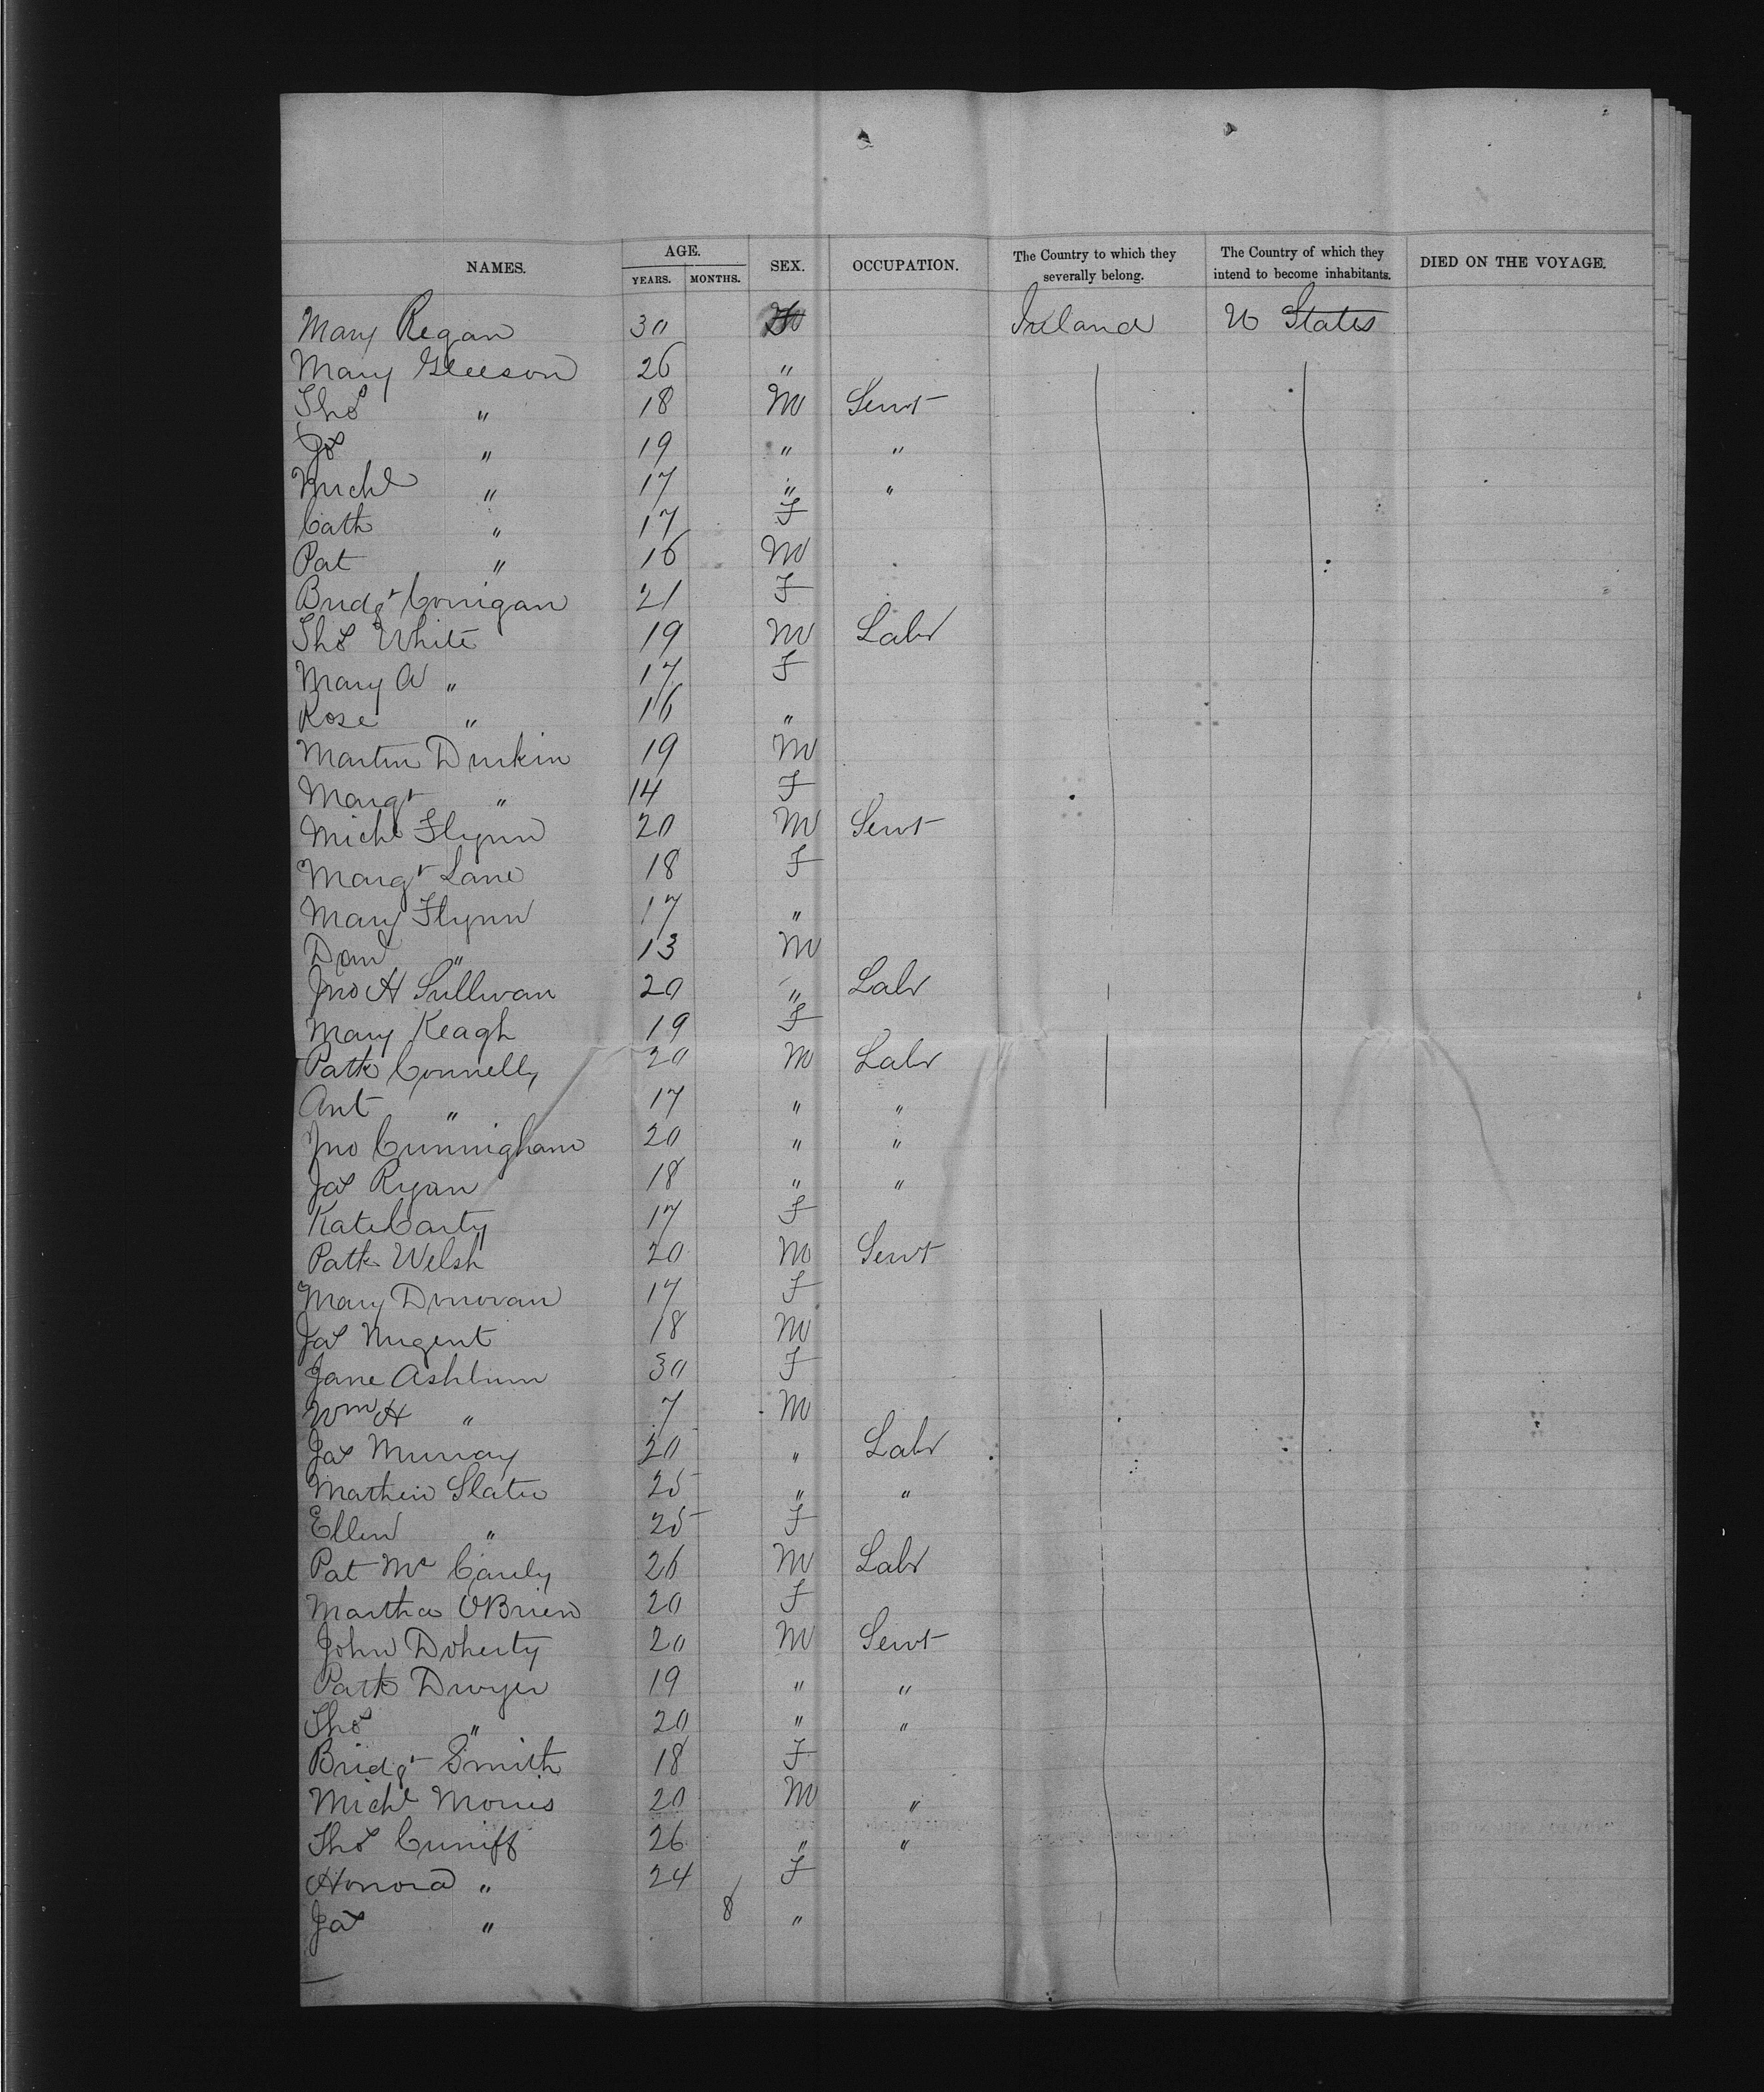 NAMES. AGE. YEARS. MONTHS. SEX. OCCUPATION. The Country to which they severally belong. The Country of which they intend to become inhabitants. DIED ON THE VOYAGE.
Mary Regan 30 Ireland U States
Mary Gleeson 26 "
Thos " 18 M Servt
Jos " 19 " "
Michl " 17 " "
Cath " 17 F
Pat " 16 M
Bridgt Corrigan 21 F
Thos White 19 M Labr
Mary A " 17 F
Rose " 16 "
Martin Durkin 19 M
Margt " 14 F
Michl Flynn 20 M Servt
Margt Lane 18 F
Mary Flynn 17 "
Danl " 13 M
Jno H Sullivan 20 " Labr
Mary Keagh 19 F
Patk Connelly 20 M Labr
Ant " 17 " "
Jno Cunningham 20 " "
Jas Ryan 18 " "
Kate Carty 17 F
Patk Welsh 20 M Servt
Mary Donovan 17 F
Jas Nugent 18 M
Jane Ashburn 30 F
Wm H " 7 M
Jas Murray 20 " Labr
Mathew Slater 25 " "
Ellen " 25 F
Pat Mc 26 M Labr
Martha OBrien 20 F
John Doherty 20 M Servt
Patk Dwyer 19 " "
Thos " 20 " "
Bridgt Smith 18 F
Michl Morris 20 M "
Thos Cuniff 26 " "
Honora " 24 F
Jas " 8 "